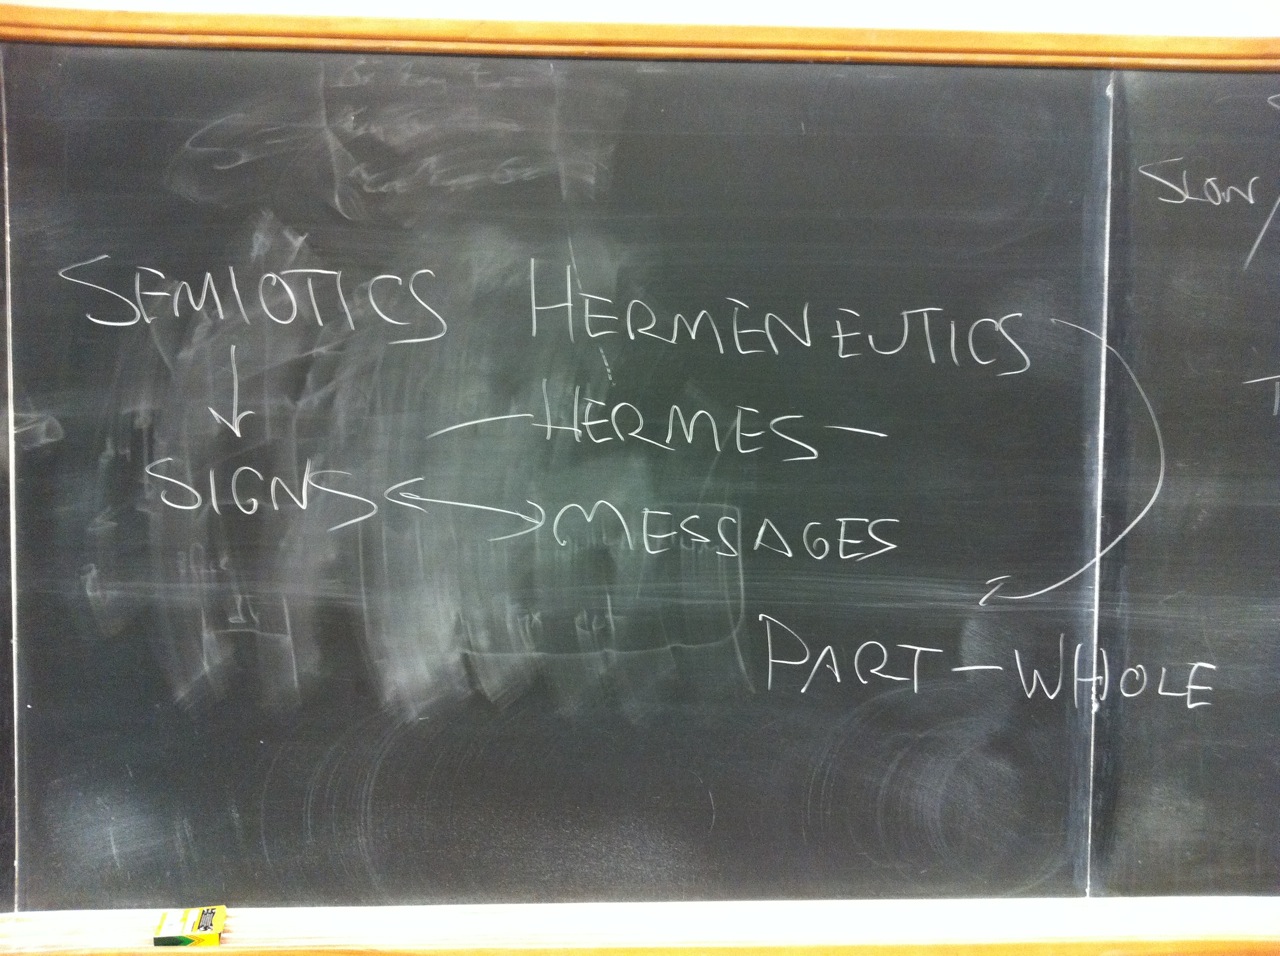 SEMIOTICS
↓
SIGNS
HERMENEUTICS
— HERMES —
↔ MESSAGES
PART — WHOLE
SLOW /
T